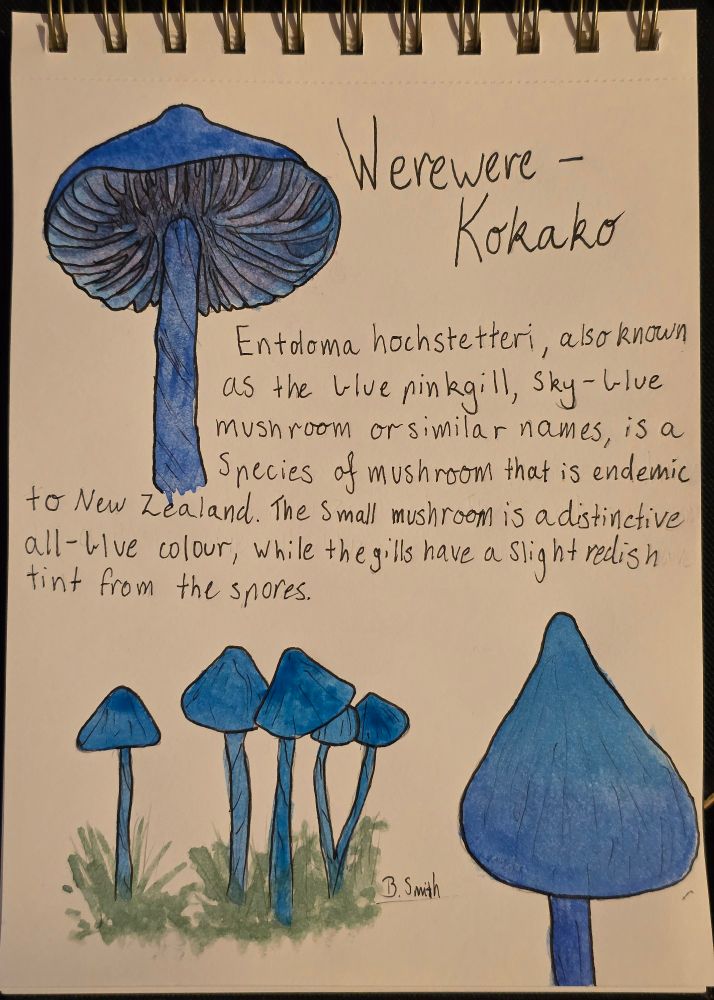 Werewere -
Kokako
Entoloma hochstetteri, also known
as the blue pinkgill, sky-blue
mushroom or similar names, is a
species of mushroom that is endemic
to New Zealand. The small mushroom is a distinctive
all-blue colour, while the gills have a slight redish
tint from the spores.
B. Smith